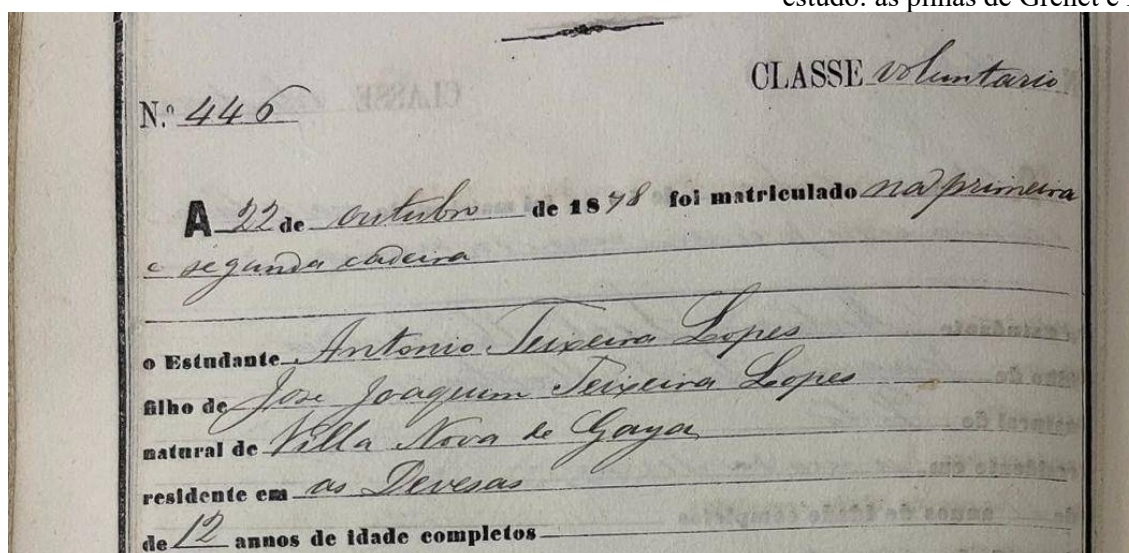 estudo: as pilhas de Grenet e
CLASSE voluntario
N.º 446
A 22 de outubro de 1878 foi matriculado na primeira
e segunda cadeira
o Estudante Antonio Teixeira Lopes
filho de Jose Joaquim Teixeira Lopes
natural de Villa Nova de Gaya
residente em as Devesas
de 12 annos de idade completos